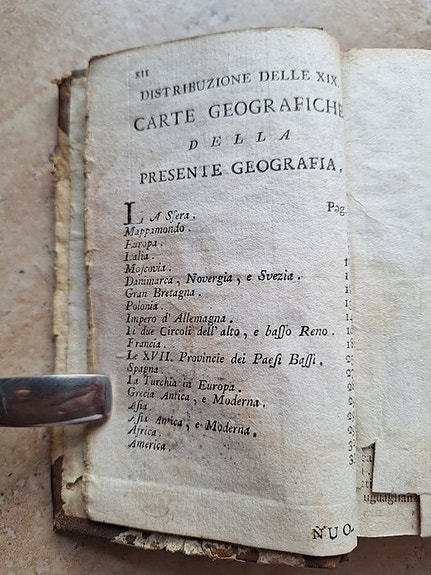 XII
DISTRIBUZIONE DELLE XIX.
CARTE GEOGRAFICHE
DELLA
PRESENTE GEOGRAFIA.
LA Sfera. Pag.
Mappamondo.
Europa.
Italia.
Moscovia. 1
Danimarca, Novergia, e Svezia. 1
Gran Bretagna. 1
Polonia. 1
Impero d'Allemagna. 1
Li due Circoli dell'alto, e basso Reno. 1
Francia. 18
Le XVII. Provincie dei Paesi Bassi. 2
Spagna. 2
La Turchia in Europa. 2
Grecia Antica, e Moderna. 2
Asia. 2
Asia Antica, e Moderna. 2
Africa. 3
America. 3
NUO
uguaglian